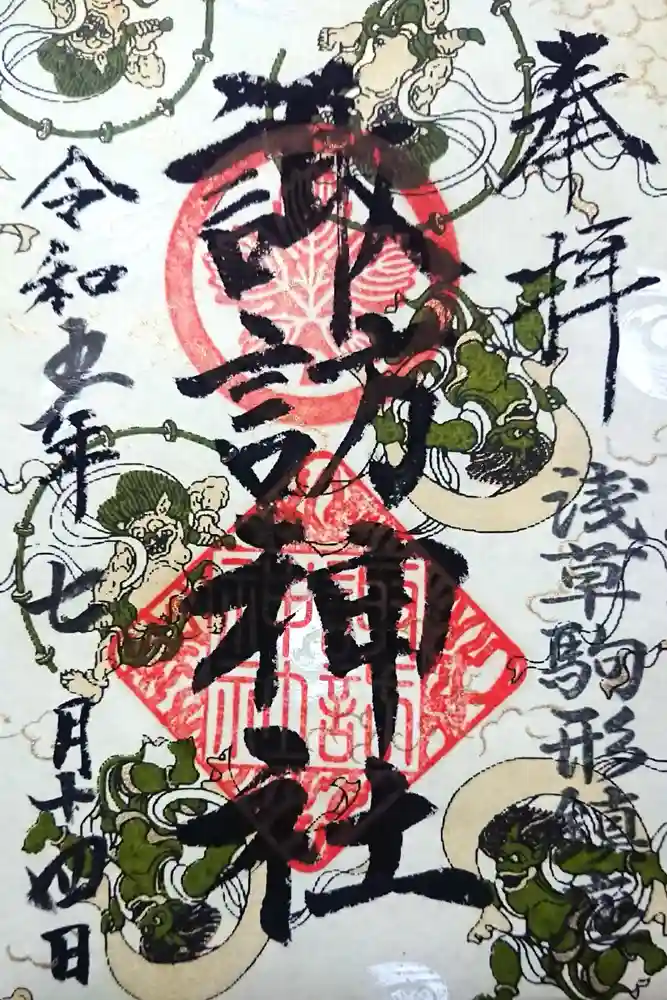 奉拝
浅草駒形鎮座
諏訪神社
令和五年七月十四日